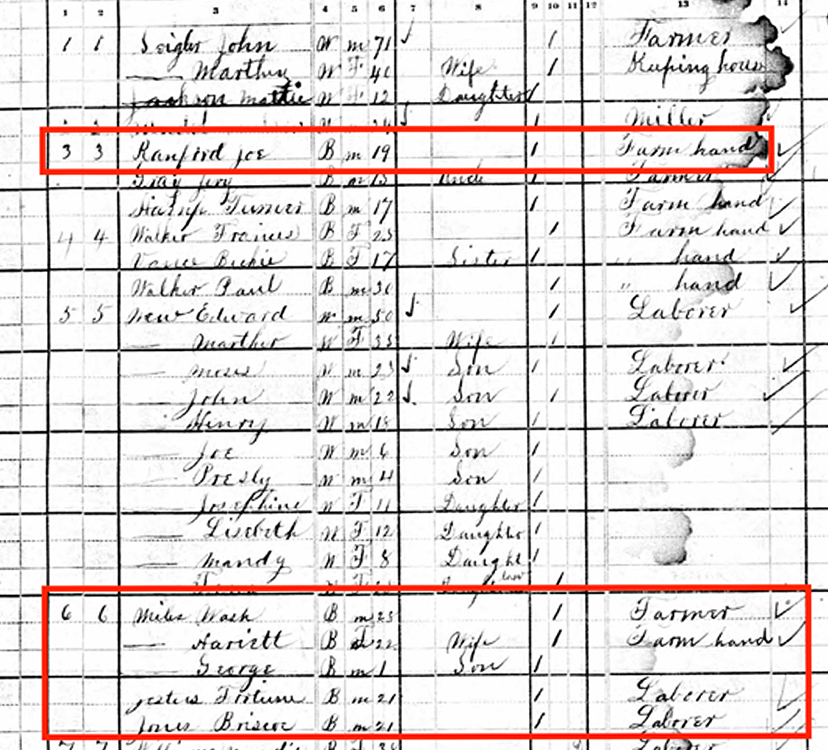 1 2 3 4 5 6 7 8 9 10 11 12 13 14
1 1 Seigler John W m 71 / Farmer
— Marthy W F 40 Wife / Keeping house
Jackson Mattie W F 12 Daughter /
Miller
3 3 Ranford Joe B m 19 / Farm hand
Gray Jery B m 15 /  Farmer
Turner B m 17 / Farm hand
4 4 Walker Frances B F 25 / Farm hand
Vance B F 17 Sister / " hand
Walker Paul B m 30 / " hand
5 5 New Edward W m 50 / Laborer
— Marther W F 35 Wife /
— Moses W m 23 Son / Laborer
— John W m 22 Son / Laborer
— Henry W m 18 Son / Laborer
— Joe W m 6 Son /
— Presly W m 4 Son /
— Josephine W F 11 Daughter /
— Lisebeth W F 12 Daughter /
— Mandy W F 8 Daught /
6 6 Miles Wash B m 25 / Farmer
— Hariett B F 22 Wife / Farm hand
— George B m 1 Son /
Fortune B m 21 / Laborer
Jones Briscoe B m 21 / Laborer
7 7 B Laborer